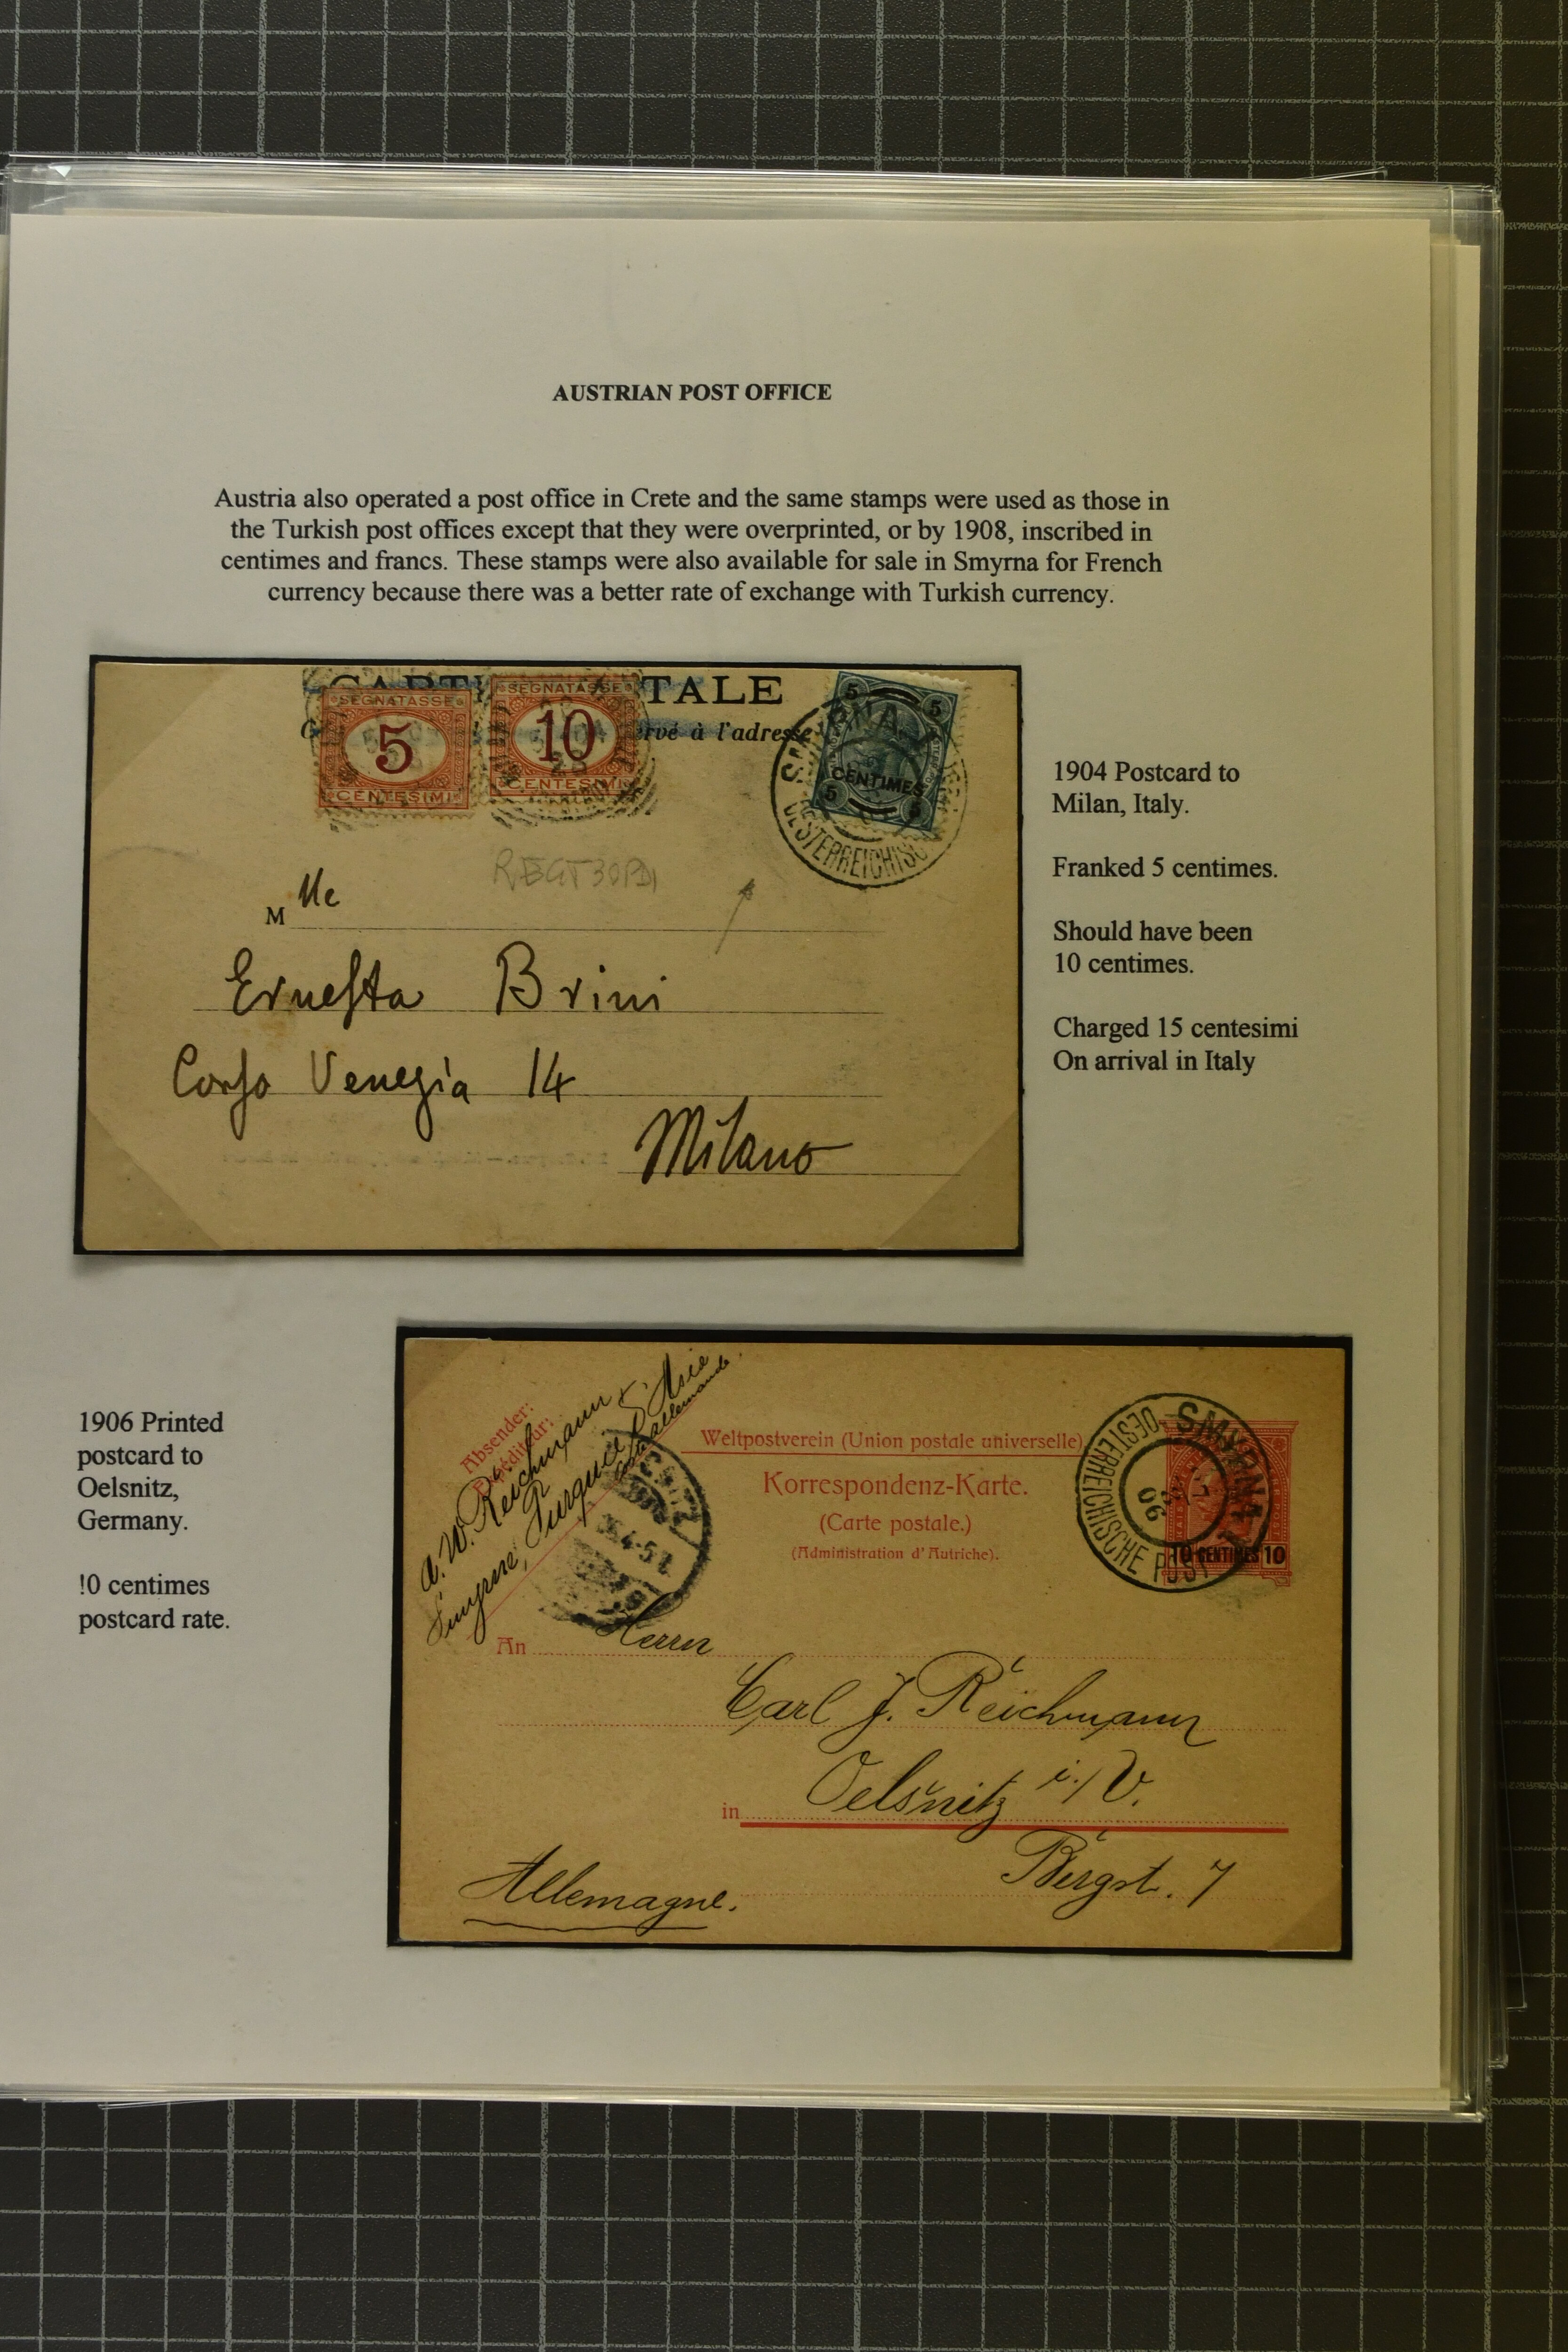 AUSTRIAN POST OFFICE
Austria also operated a post office in Crete and the same stamps were used as those in
the Turkish post offices except that they were overprinted, or by 1908, inscribed in
centimes and francs. These stamps were also available for sale in Smyrna for French
currency because there was a better rate of exchange with Turkish currency.
TALE
à l'adresse
SEGNATASSE
5
CENTESIMI
SEGNATASSE
10
CENTESIMI
5 5
CENTIMES
5 5
OESTERREICHISC
REGT30PDI
M lle
Ernesta Brini
Corso Venezia 14
Milano
1904 Postcard to
Milan, Italy.
Franked 5 centimes.
Should have been
10 centimes.
Charged 15 centesimi
On arrival in Italy
1906 Printed
postcard to
Oelsnitz,
Germany.
!0 centimes
postcard rate.
Absender:
A. W. Reichmann
Smyrne, Turquie d'Asie
Poste allemande
Weltpostverein (Union postale universelle)
Korrespondenz-Karte.
(Carte postale.)
(Administration d'Autriche).
SMYRNA
OESTERREICHISCHE POST
06
10 CENTIMES 10
An Herrn
Carl J. Reichmann
in Oelsnitz i./V.
Bergst. 7
Allemagne.